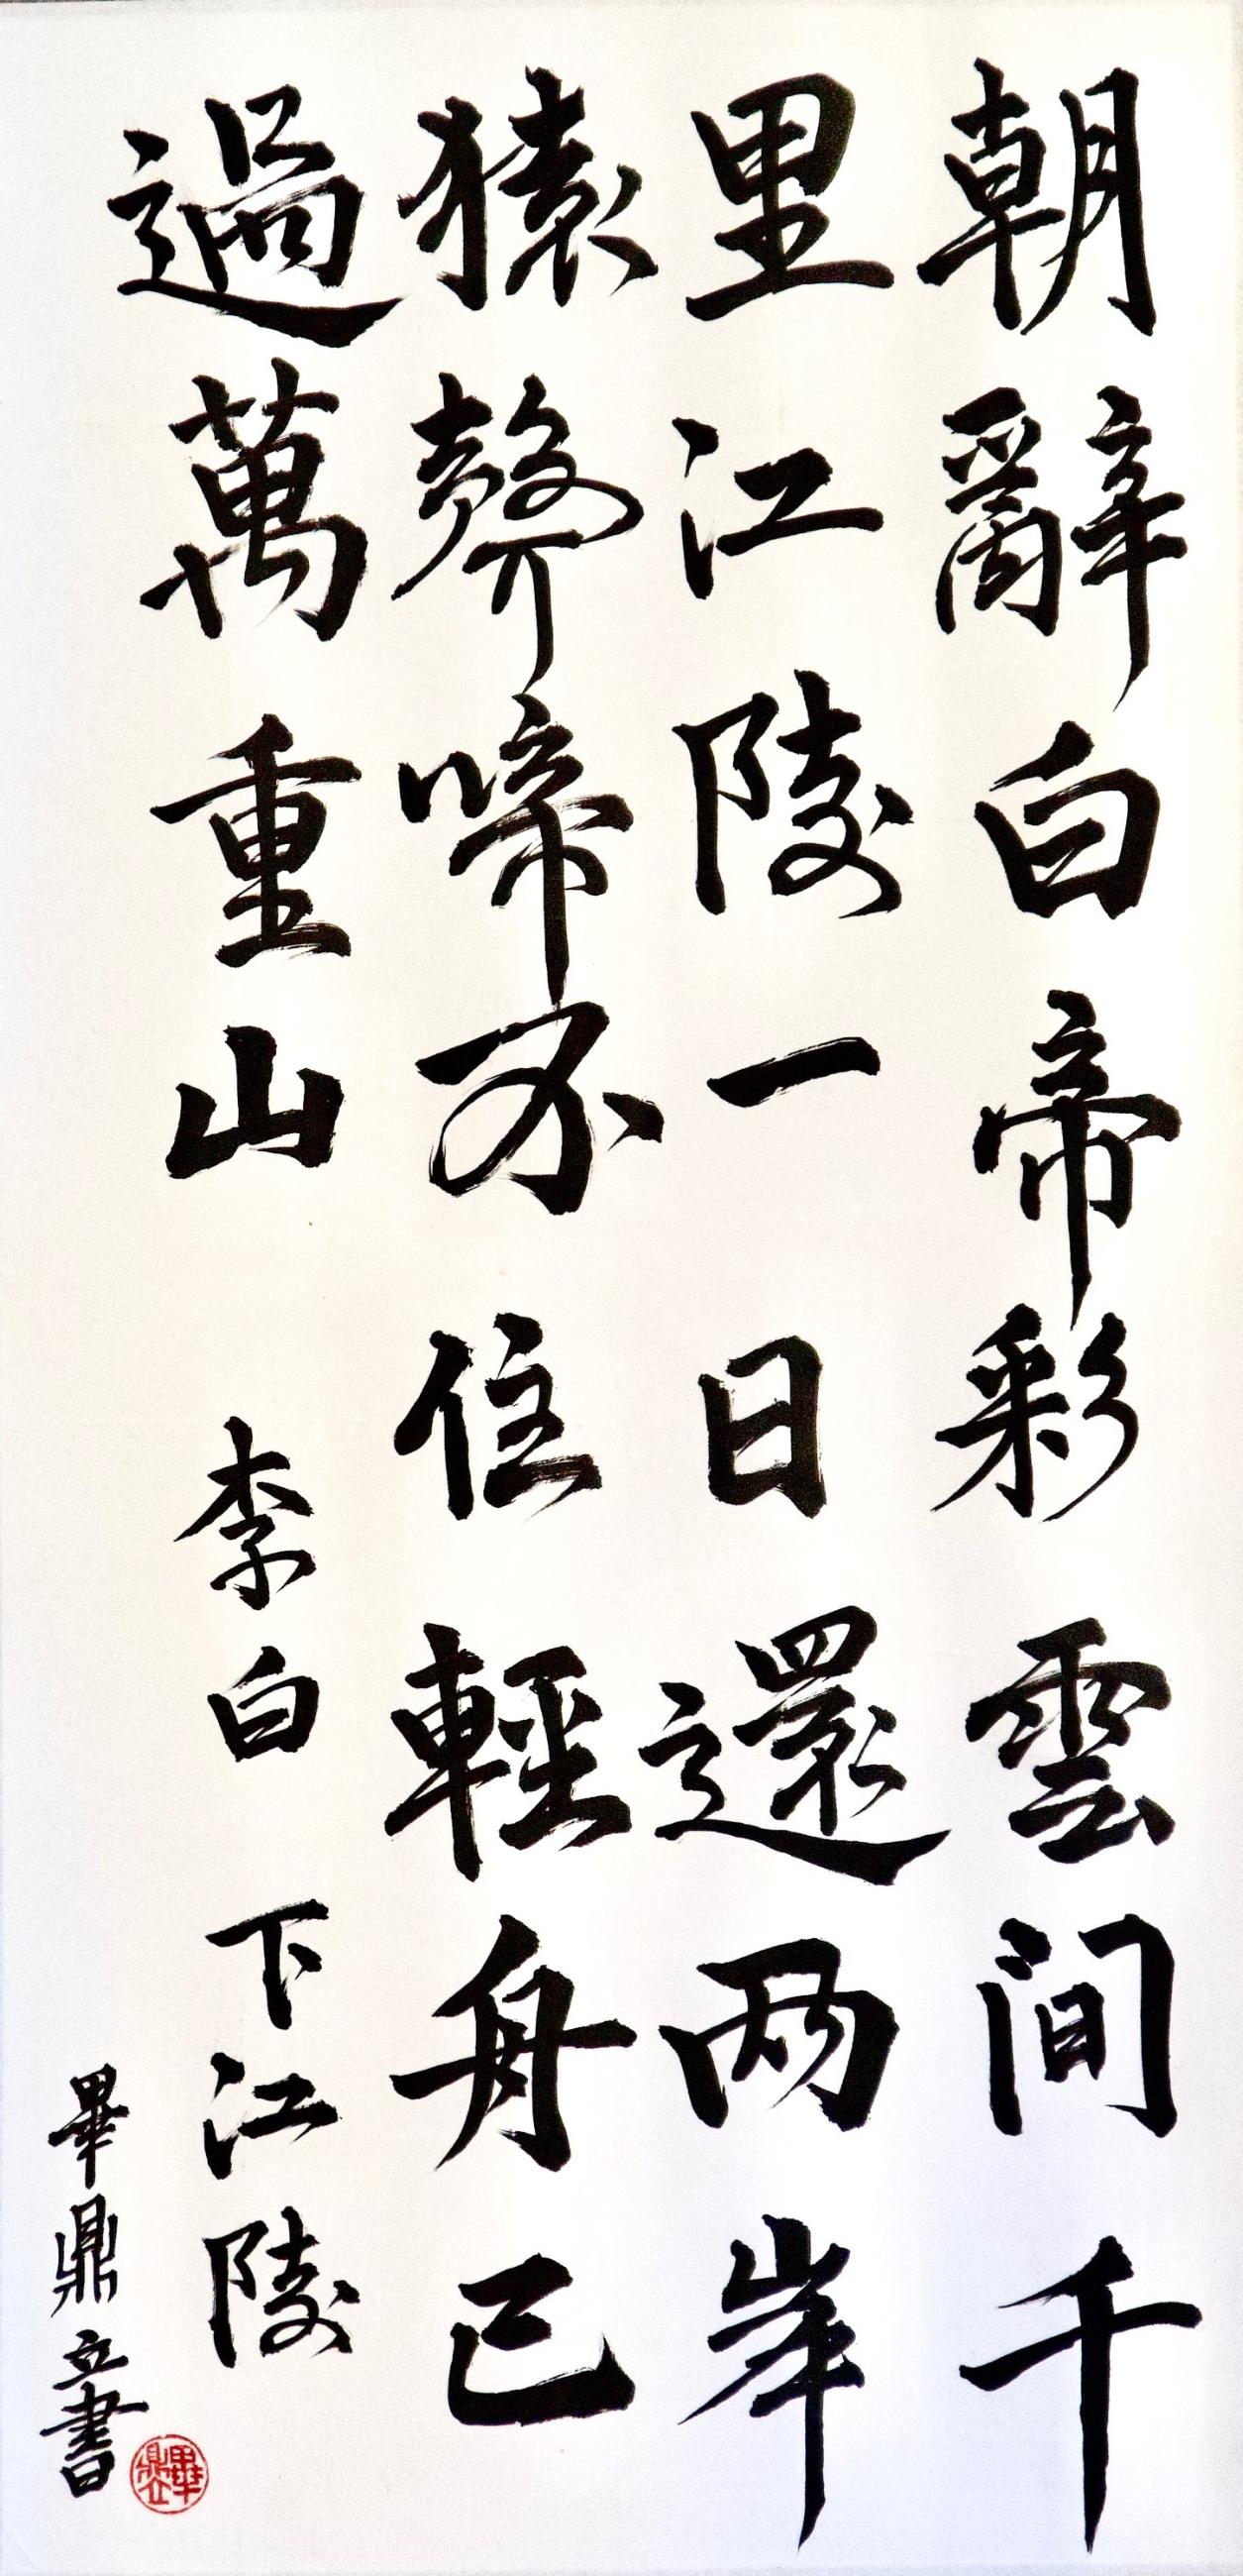 朝辭白帝彩雲間千
里江陵一日還两岸
猿聲啼不住輕舟已
過萬重山 李白 下江陵
畢鼎立書
畢鼎立